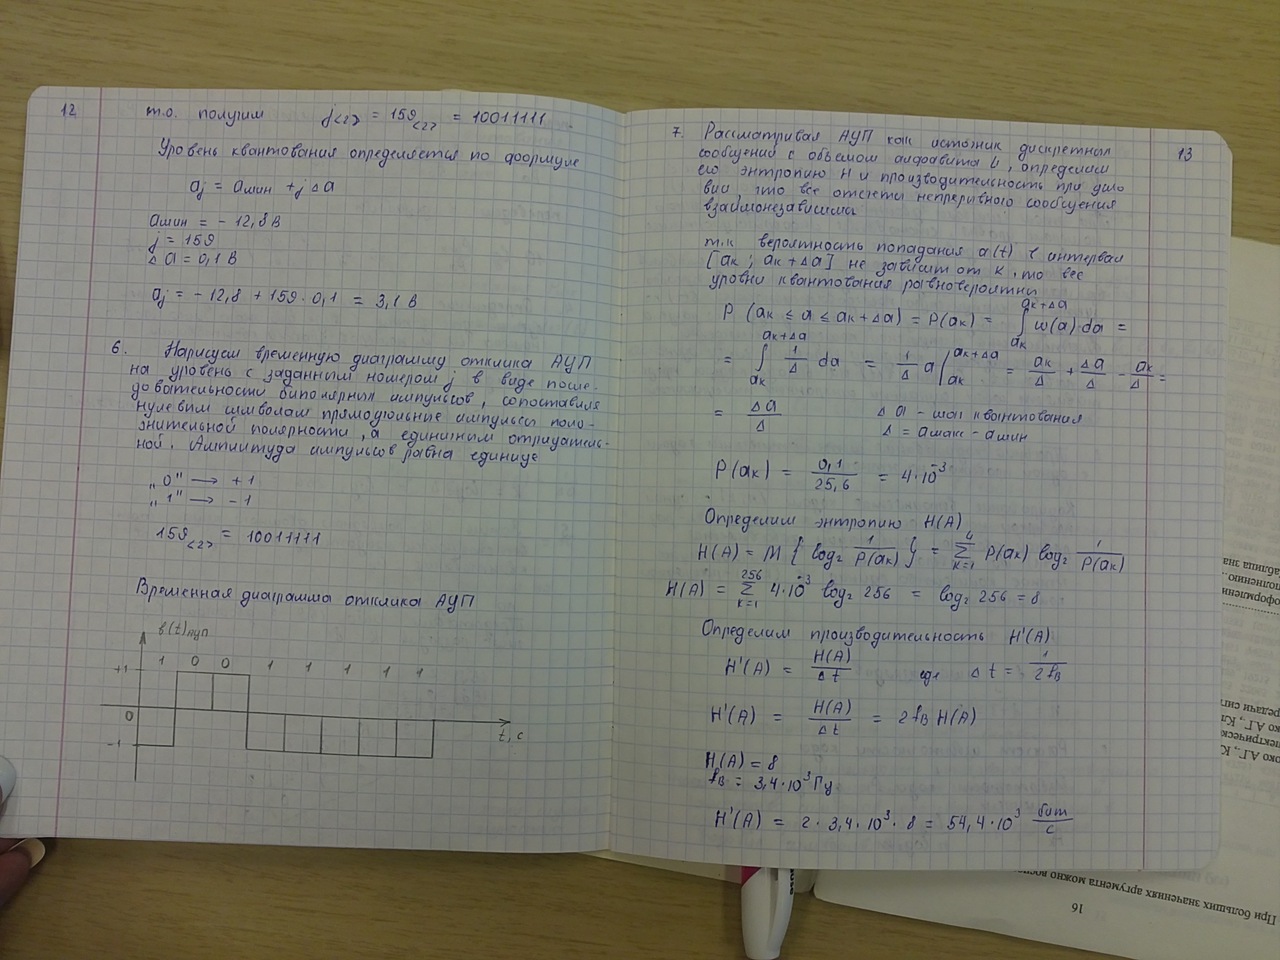 12
т.о. получим j<2> = 159<2> = 10011111
Уровень квантования определяется по формуле
aj = aмин + jΔa
aмин = - 12,8 В
j = 159
Δa = 0,1 В
aj = - 12,8 + 159 · 0,1 = 3,1 В
6. Нарисуем временную диаграмму отклика АЦП
на уровень с заданным номером j в виде после-
довательности биполярных импульсов, сопоставив
нулевым символам прямоугольные импульсы поло-
жительной полярности, а единичным отрицатель-
ной. Амплитуда импульсов равна единице
„0" → +1
„1" → -1
159<2> = 10011111
Временная диаграмма отклика АЦП
b(t)АЦП
+1 1 0 0 1 1 1 1 1
0
t, с
-1
13
7. Рассматривая АЦП как источник дискретных
сообщений с объемом алфавита L, определим
его энтропию H и производительность при усло
вии, что все отсчеты непрерывного сообщения
взаимонезависимы
т.к вероятность попадания a(t) в интервал
[aк ; aк + Δa] не зависит от к, то все
уровни квантования равновероятны
P (aк ≤ a ≤ aк + Δa) = P(aк) = ∫aк^aк+Δa w(a) da =
= ∫aк^aк+Δa 1/Δ da = 1/Δ a |aк^aк+Δa = aк/Δ + Δa/Δ - aк/Δ =
= Δa/Δ Δa - шаг квантования
Δ = aмакс - aмин
P(aк) = 0,1/25,6 = 4·10^-3
Определим энтропию H(A)
H(A) = M { log2 1/P(aк) } = ∑к=1^L P(aк) log2 1/P(aк)
H(A) = ∑к=1^256 4·10^-3 log2 256 = log2 256 = 8
Определим производительность H'(A)
H'(A) = H(A)/Δt где Δt = 1/2fв
H'(A) = H(A)/Δt = 2fв H(A)
H(A) = 8
fв = 3,4·10^3 Гц
H'(A) = 2 · 3,4 · 10^3 · 8 = 54,4·10^3 бит/с
При больших значениях аргумента можно
16